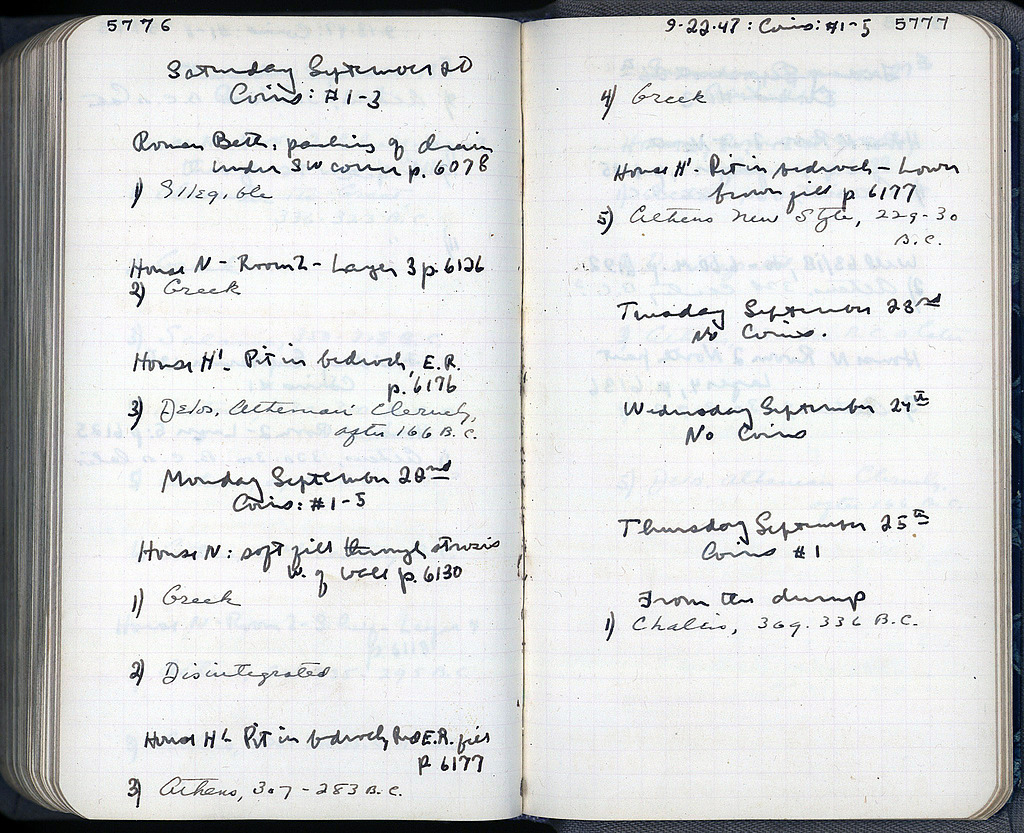 5776
Saturday September 20
Coins: #1-3
Roman Bath: packing of drain
under SW corner p. 6078
1) Illegible
House N - Room 2 - Layer 3 p. 6126
2) Greek
House H' Pit in bedrock, E.R.
p. 6176
3) Delos, Athenian Cleruchy,
after 166 B.C.
Monday September 22nd
Coins: #1-5
House N: soft fill through strosis
W. of wall p. 6130
1) Greek
2) Disintegrated
House H' Pit in bedrock, E.R. fill
p 6177
3) Athens, 307-283 B.C.
9-22-47: Coins: #1-5 5777
4) Greek
House H' Pit in bedrock - Lower
brown fill p 6177
5) Athens New Style, 229-30
B.C.
Tuesday September 23rd
No Coins.
Wednesday September 24th
No Coins
Thursday September 25th
Coins #1
From the dump
1) Chalcis, 369-336 B.C.